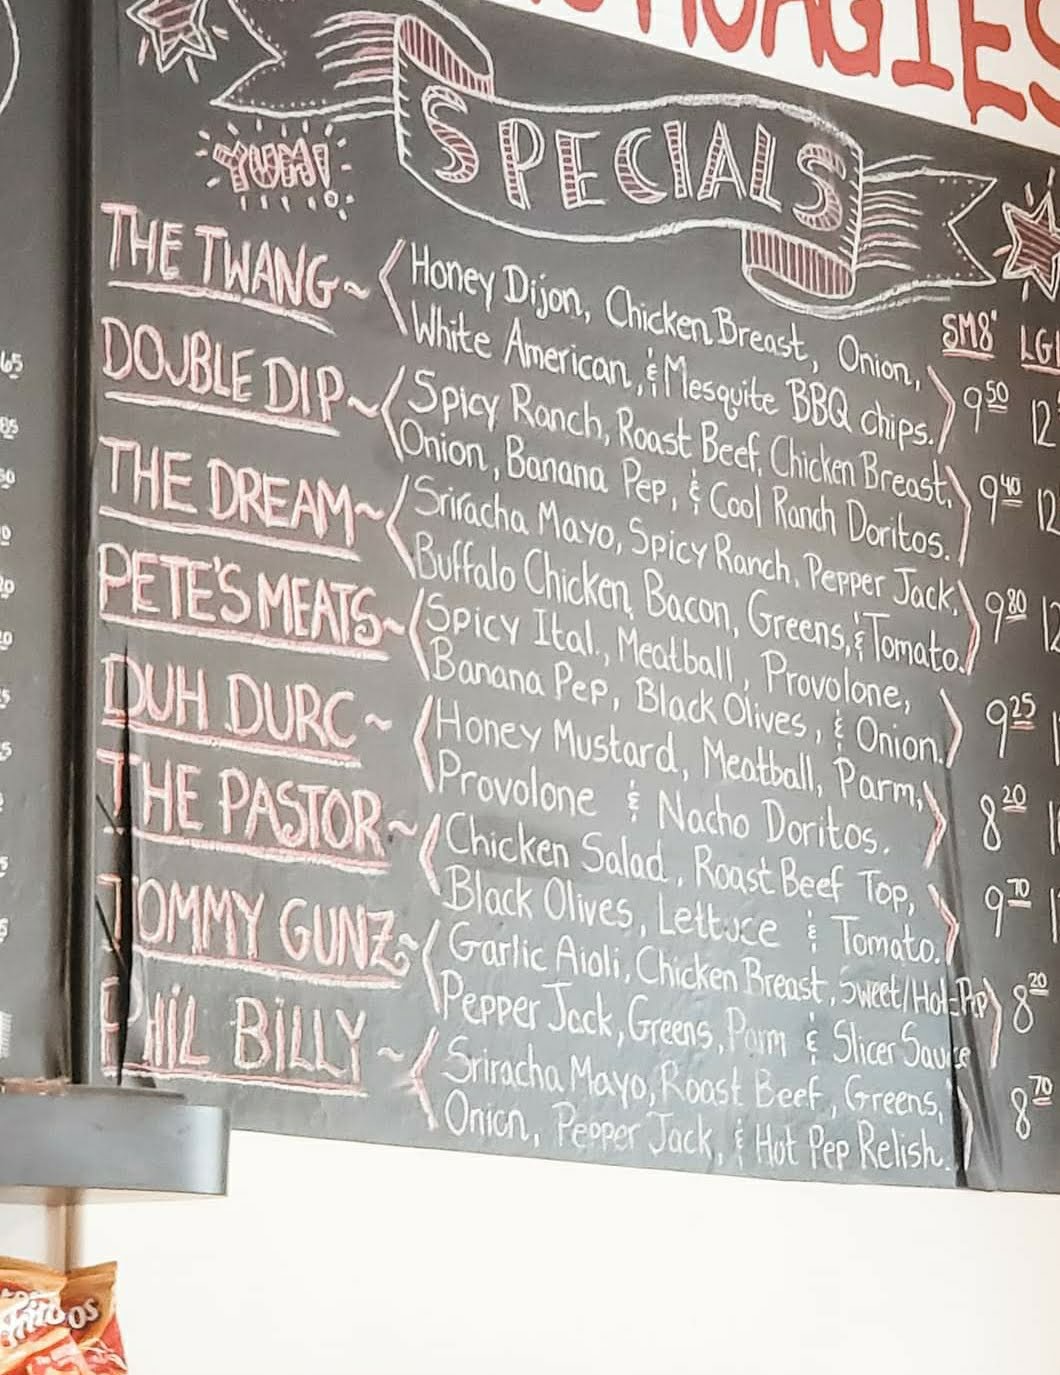 HOAGIES
SPECIALS
YUM!
SM8" LG
THE TWANG~ Honey Dijon, Chicken Breast, Onion,
White American, & Mesquite BBQ chips. 9 50 12
DOUBLE DIP~ Spicy Ranch, Roast Beef, Chicken Breast,
Onion, Banana Pep, & Cool Ranch Doritos. 9 40 12
THE DREAM~ Sriracha Mayo, Spicy Ranch, Pepper Jack,
Buffalo Chicken, Bacon, Greens, & Tomato. 9 80 12
PETE'S MEATS~ Spicy Ital., Meatball, Provolone,
Banana Pep, Black Olives, & Onion. 9 25
DUH DURC~ Honey Mustard, Meatball, Parm,
Provolone & Nacho Doritos. 8 20
THE PASTOR~ Chicken Salad, Roast Beef Top,
Black Olives, Lettuce & Tomato. 9 70
TOMMY GUNZ~ Garlic Aioli, Chicken Breast, Sweet/Hot Pep
Pepper Jack, Greens, Parm & Slicer Sauce 8 20
PHIL BILLY~ Sriracha Mayo, Roast Beef, Greens,
Onion, Pepper Jack, & Hot Pep Relish. 8 70
Fritos